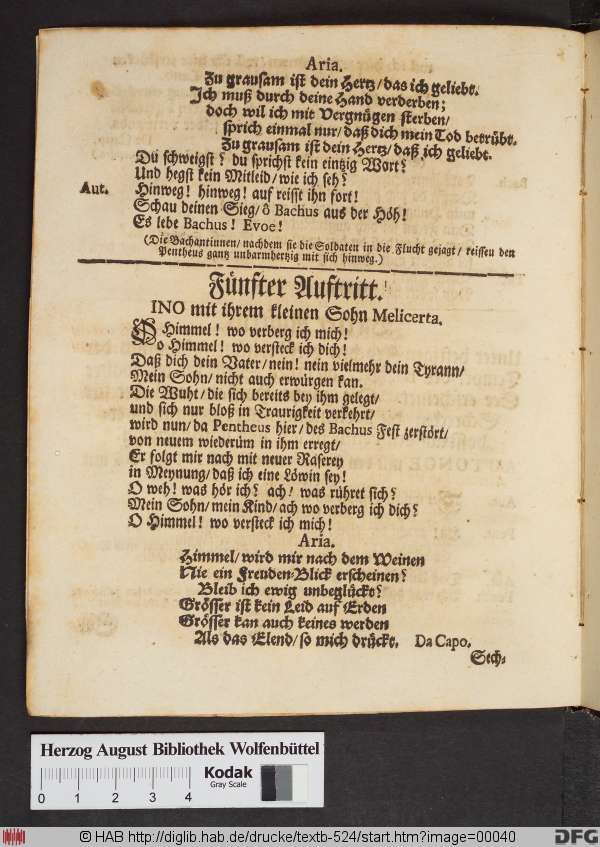 Aria.
Zu grausam ist dein Hertz/das ich geliebt.
Ich muß durch deine Hand verderben;
doch wil ich mit Vergnügen sterben/
sprich einmal nur/ daß dich mein Tod betrübt.
Zu grausam ist dein Hertz/ daß ich geliebt.
Du schweigst? du sprichst kein eintzig Wort?
Und hegst kein Mitleid/ wie ich seh?
Aut. Hinweg! hinweg! auf reisst ihn fort!
Schau deinen Sieg/ ô Bachus aus der Höh!
Es lebe Bachus! Evoe!
(Die Bachantinnen/ nachdem sie die Soldaten in die Flucht gejagt/ reissen den
Pentheus gantz unbarmhertzig mit sich hinweg.)
Fünfter Auftritt.
INO mit ihrem kleinen Sohn Melicerta.
O Himmel! wo verberg ich mich!
o Himmel! wo versteck ich dich!
Daß dich dein Vater/ nein! nein vielmehr dein Tyrann/
Mein Sohn/ nicht auch erwürgen kan.
Die Wuht/ die sich bereits bey ihm gelegt/
und sich nur bloß in Traurigkeit verkehrt/
wird nun/ da Pentheus hier/ des Bachus Fest zerstört/
von neuem wiederüm in ihm erregt/
Er folgt mir nach mit neuer Raserey
in Meynung/ daß ich eine Löwin sey!
O weh! was hör ich? ach! was rühret sich?
Mein Sohn/ mein Kind/ ach wo verberg ich dich?
O Himmel! wo versteck ich mich!
Aria.
Himmel/ wird mir nach dem Weinen
Nie ein Freuden-Blick erscheinen?
Bleib ich ewig unbeglückt?
Grösser ist kein Leid auf Erden
Grösser kan auch keines werden
Als das Elend/ so mich drückt. Da Capo.
Sech-
Herzog August Bibliothek Wolfenbüttel
Kodak
Gray Scale
0 1 2 3 4
© HAB http://diglib.hab.de/drucke/textb-524/start.htm?image=00040
DFG